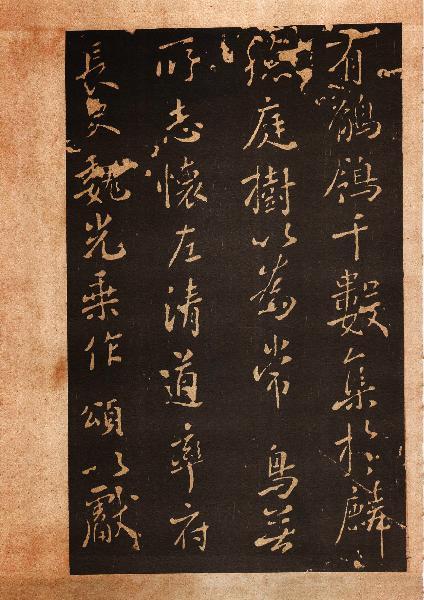 有鶺鴒千數集於麟
庭樹以為常鳥無
所志懷左清道率府
長史魏光乘作頌以獻